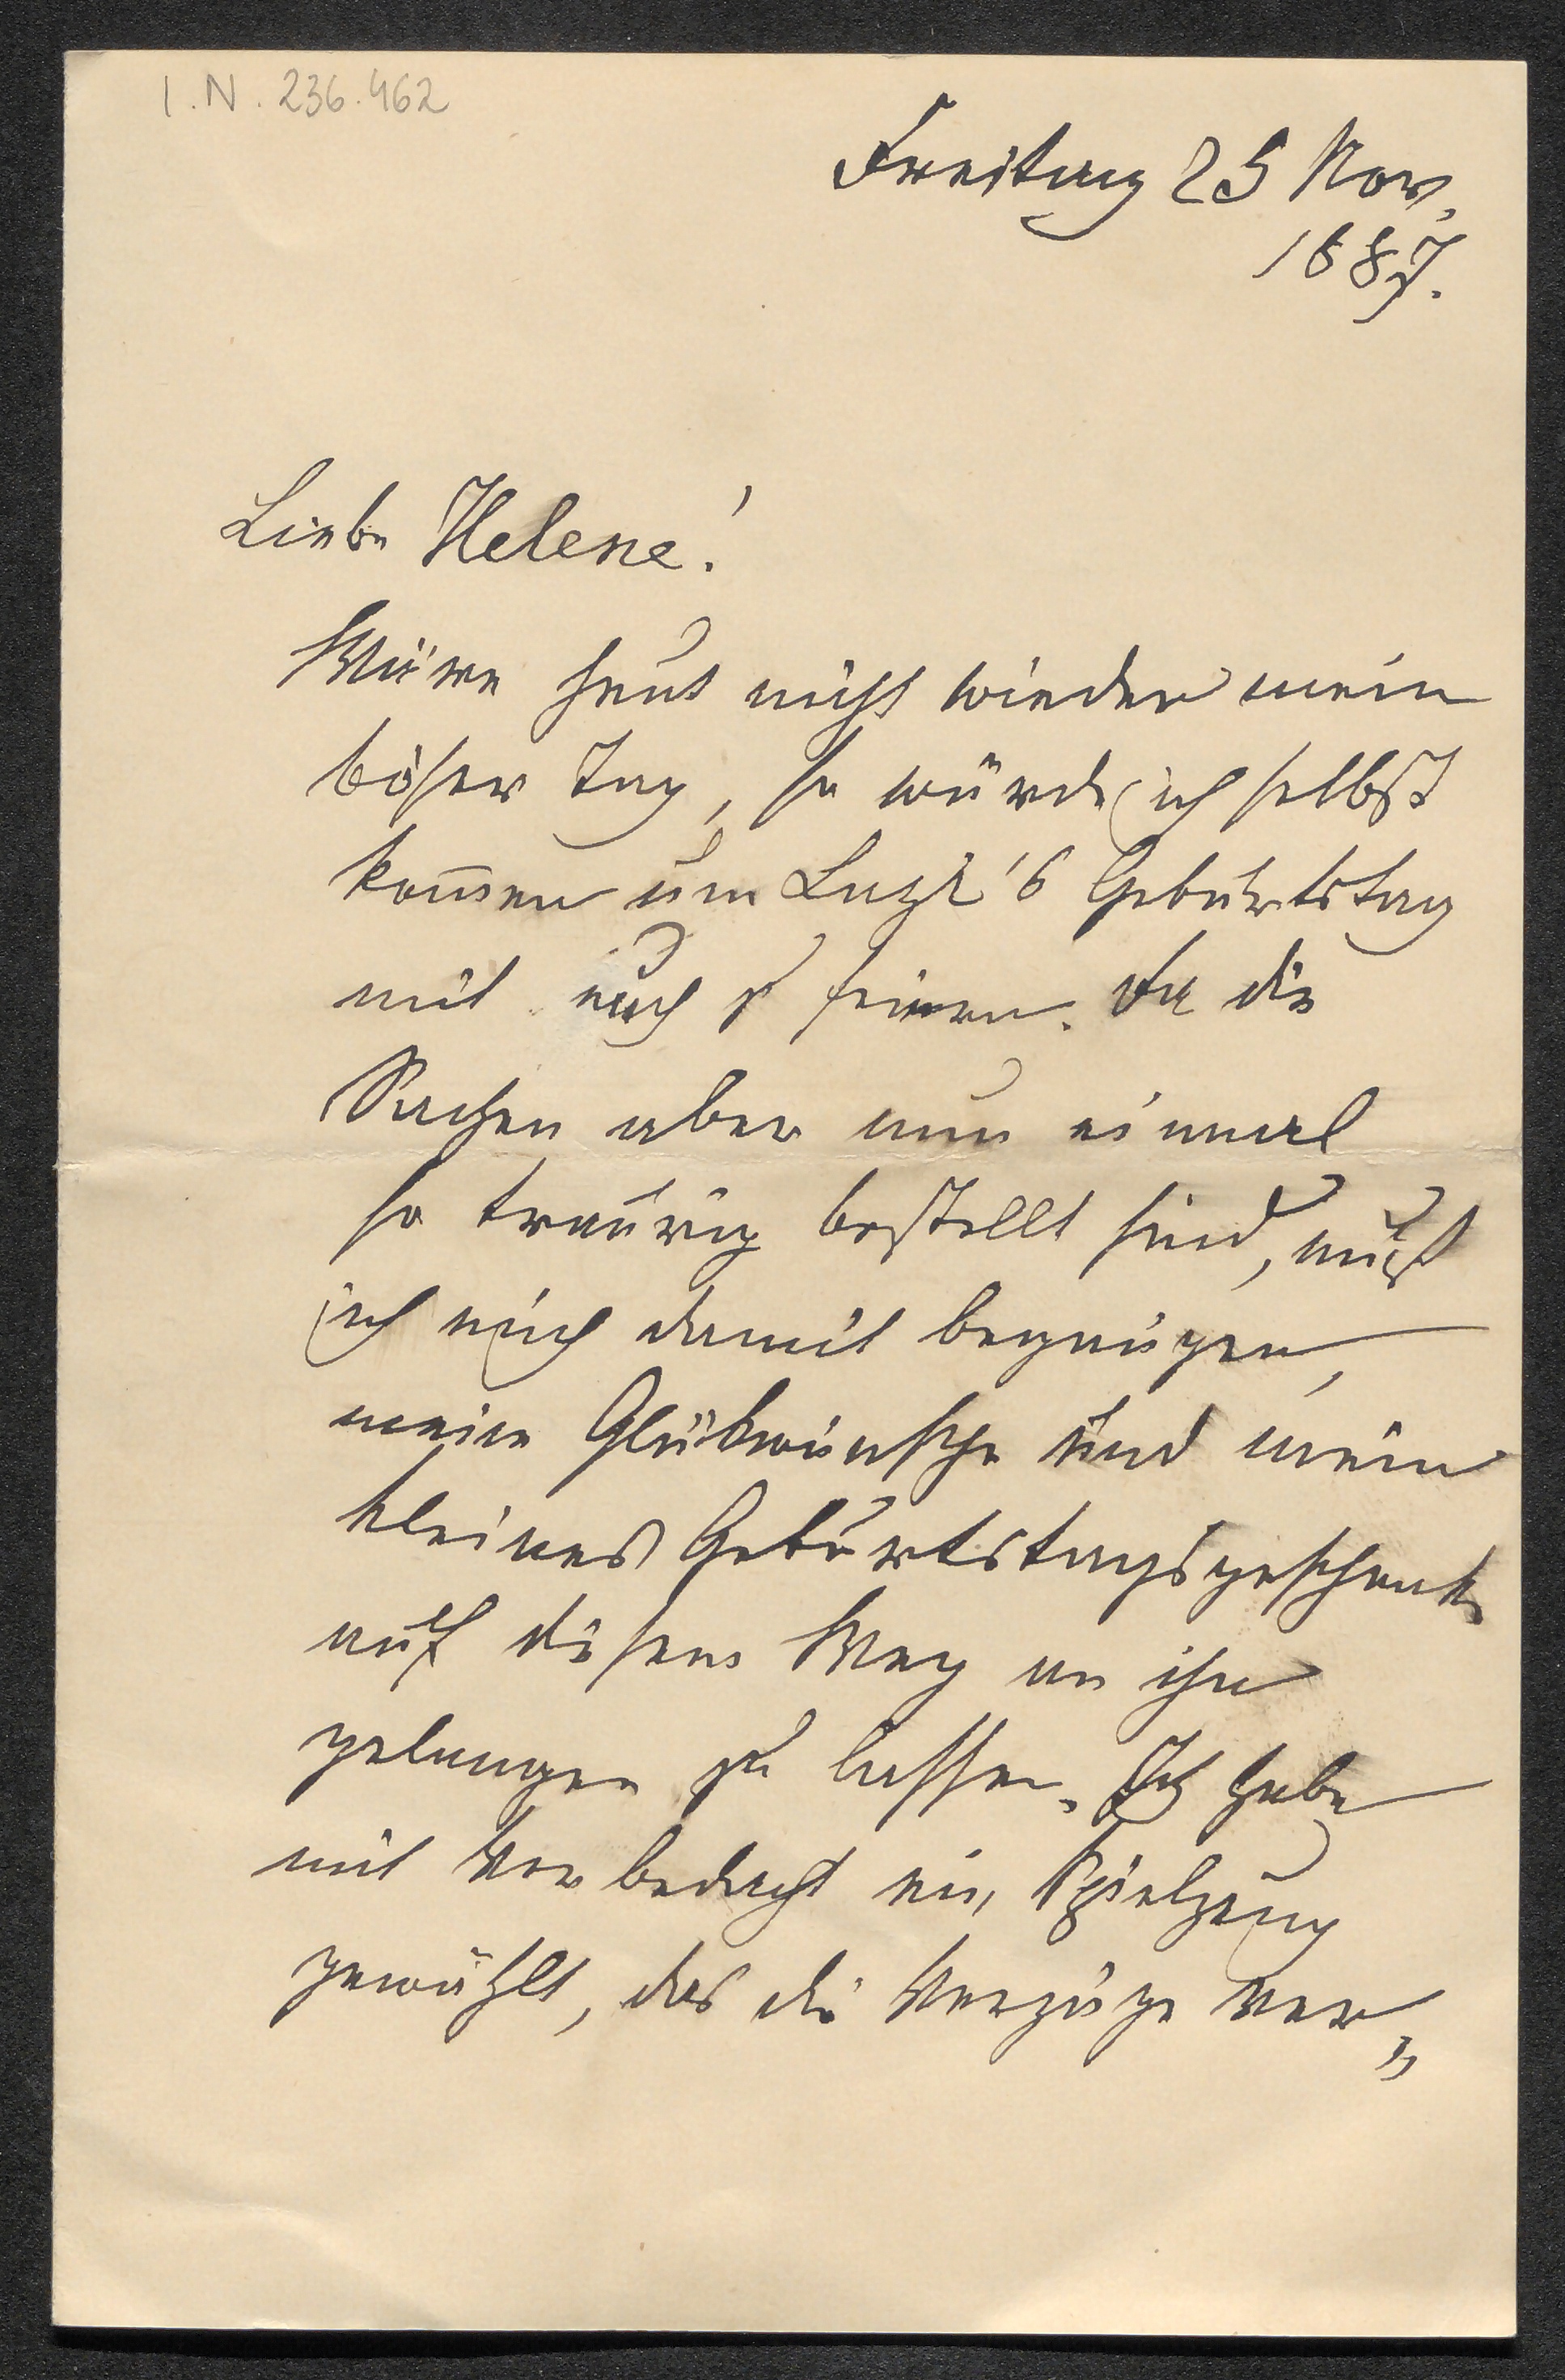 I.N. 236.462
Freitag 25 Nov.
1887.
Liebe Helene!
Wäre heut nicht wieder mein
böser Tag, so würde ich selbst
kom̄en um Luzi's Geburtstag
mit euch zu feiern. Da die
Sachen aber nun einmal
so traurig bestellt sind, muß
ich mich damit begnügen,
meine Glükwünsche und mein
kleines Geburtstagsgeschenk
auf disem Weg an ihn
gelangen zu lassen. Ich habe
mit Vorbedacht ein Spielzeug
gewählt, das die Vorzüge ver„